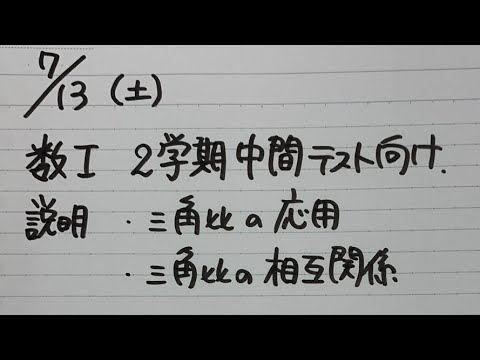 7/13 (土)
数I 2学期中間テスト向け.
説明 ・三角比の応用
・三角比の相互関係